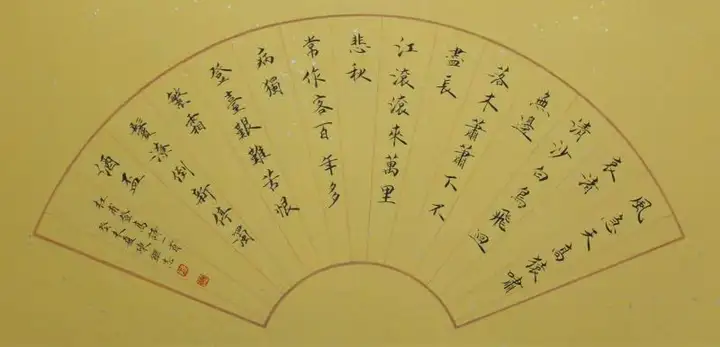 風急天高猿嘯
哀渚
清沙白鳥飛迴
無邊
落木蕭蕭下不
盡長
江滾滾來萬里
悲秋
常作客百年多
病獨
登臺艱難苦恨
繁霜
鬢潦倒新停濁
酒盃
杜甫登高詩一首
癸未夏